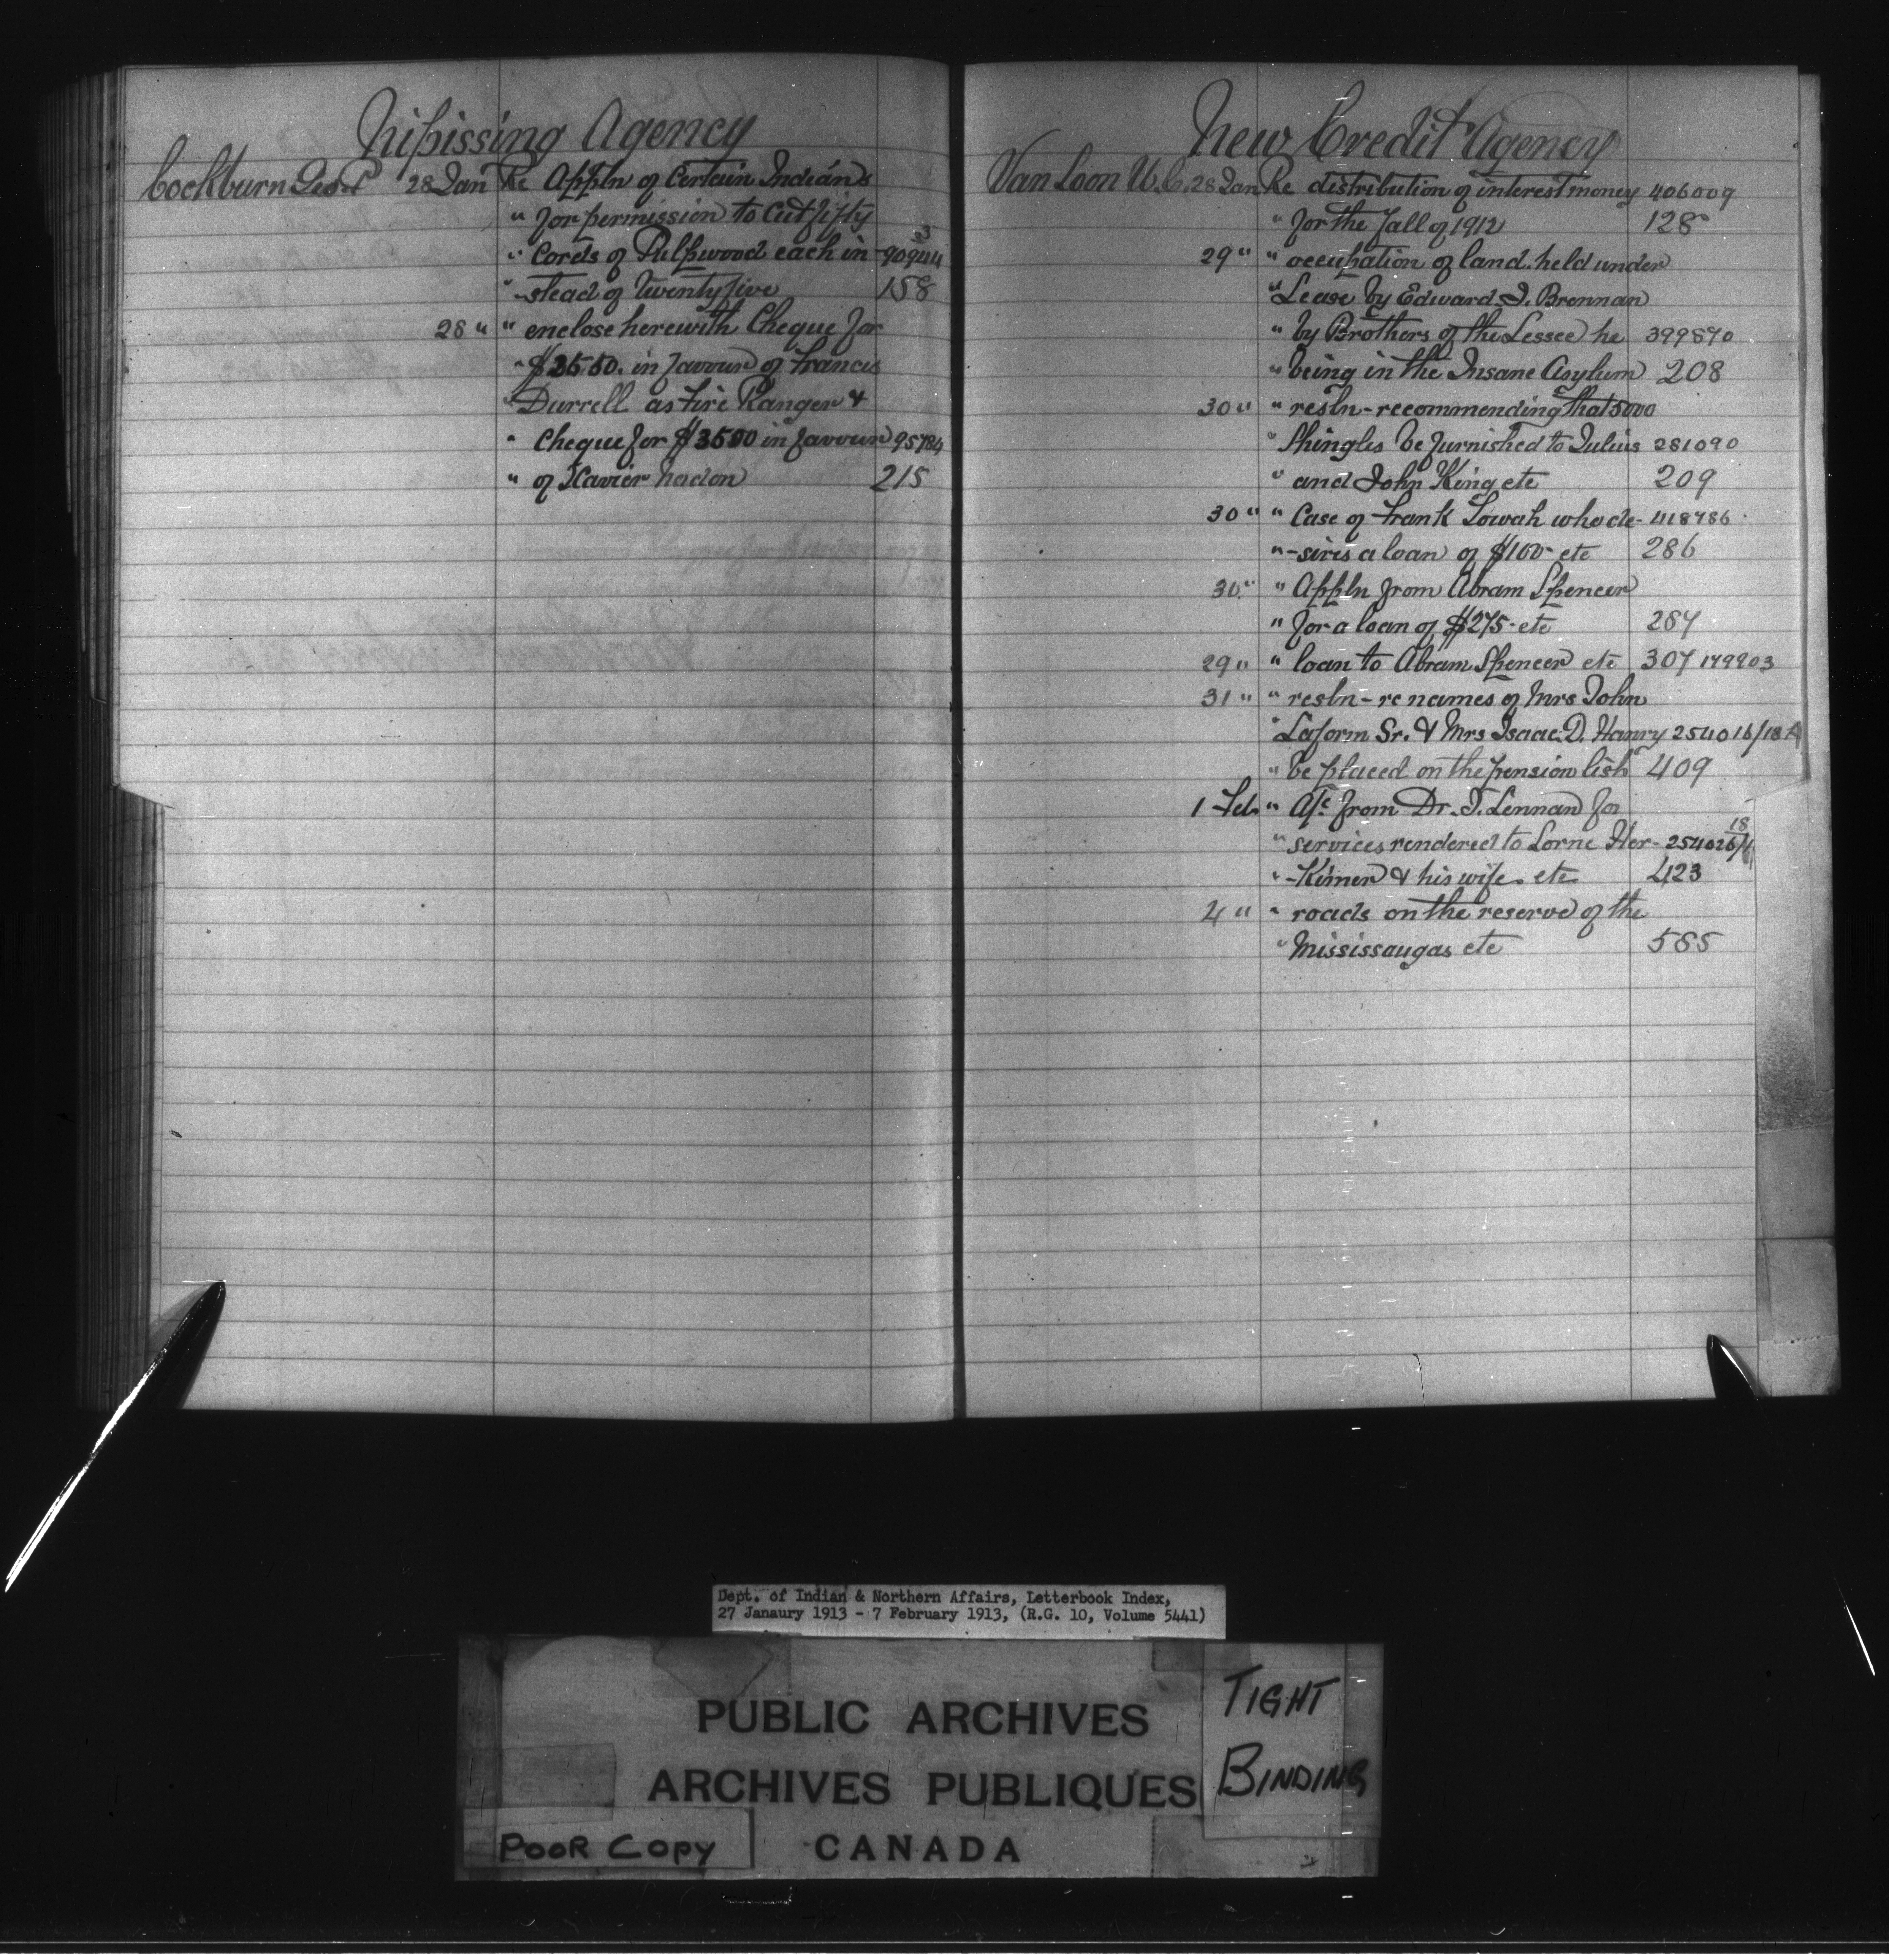 Nipissing Agency
Cockburn Geo. P 28 Jan Re Appln of Certain Indians
" for permission to Cut fifty
" Cords of Pulpwood each in- 90944 3
" -stead of Twenty five 158
28 " " enclose herewith Cheque for
" in favour of Francis
" Durrell as Fire Ranger &
" Cheque for in favour 95784
" of Xavier Nadon 215
New Credit Agency
Van Loon W.C. 28 Jan Re distribution of interest money 406009
" for the fall of 1912 128
29 " " occupation of land held under
" Lease by Edward I. Brennan
" by Brothers of the Lessee he 399870
" being in the Insane Asylum 208
30 " " resln - recommending that 5000
" Shingles be furnished to Julius 281090
" and John King etc 209
30 " " Case of Frank Sowah who de- 418786
" -sires a loan of $100- etc 286
30 " " Appln from Abram Spencer
" for a loan of $275- etc 287
29 " " loan to Abram Spencer etc 307 179903
31 " " resln - re names of Mrs John
" Laform Sr. & Mrs Isaac D. Henry 254016/18A
" be placed on the pension list 409
1 Feb " A/c from Dr. T. Lennan for
" services rendered to Lorne Her- 254026/ 18
" -Kimer & his wife etc 423
4 " " roads on the reserve of the
" Mississaugas etc 585
Dept. of Indian & Northern Affairs, Letterbook Index,
27 Janaury 1913 - 7 February 1913, (R.G. 10, Volume 5441)
PUBLIC ARCHIVES
ARCHIVES PUBLIQUES
CANADA
TIGHT
BINDING
POOR COPY